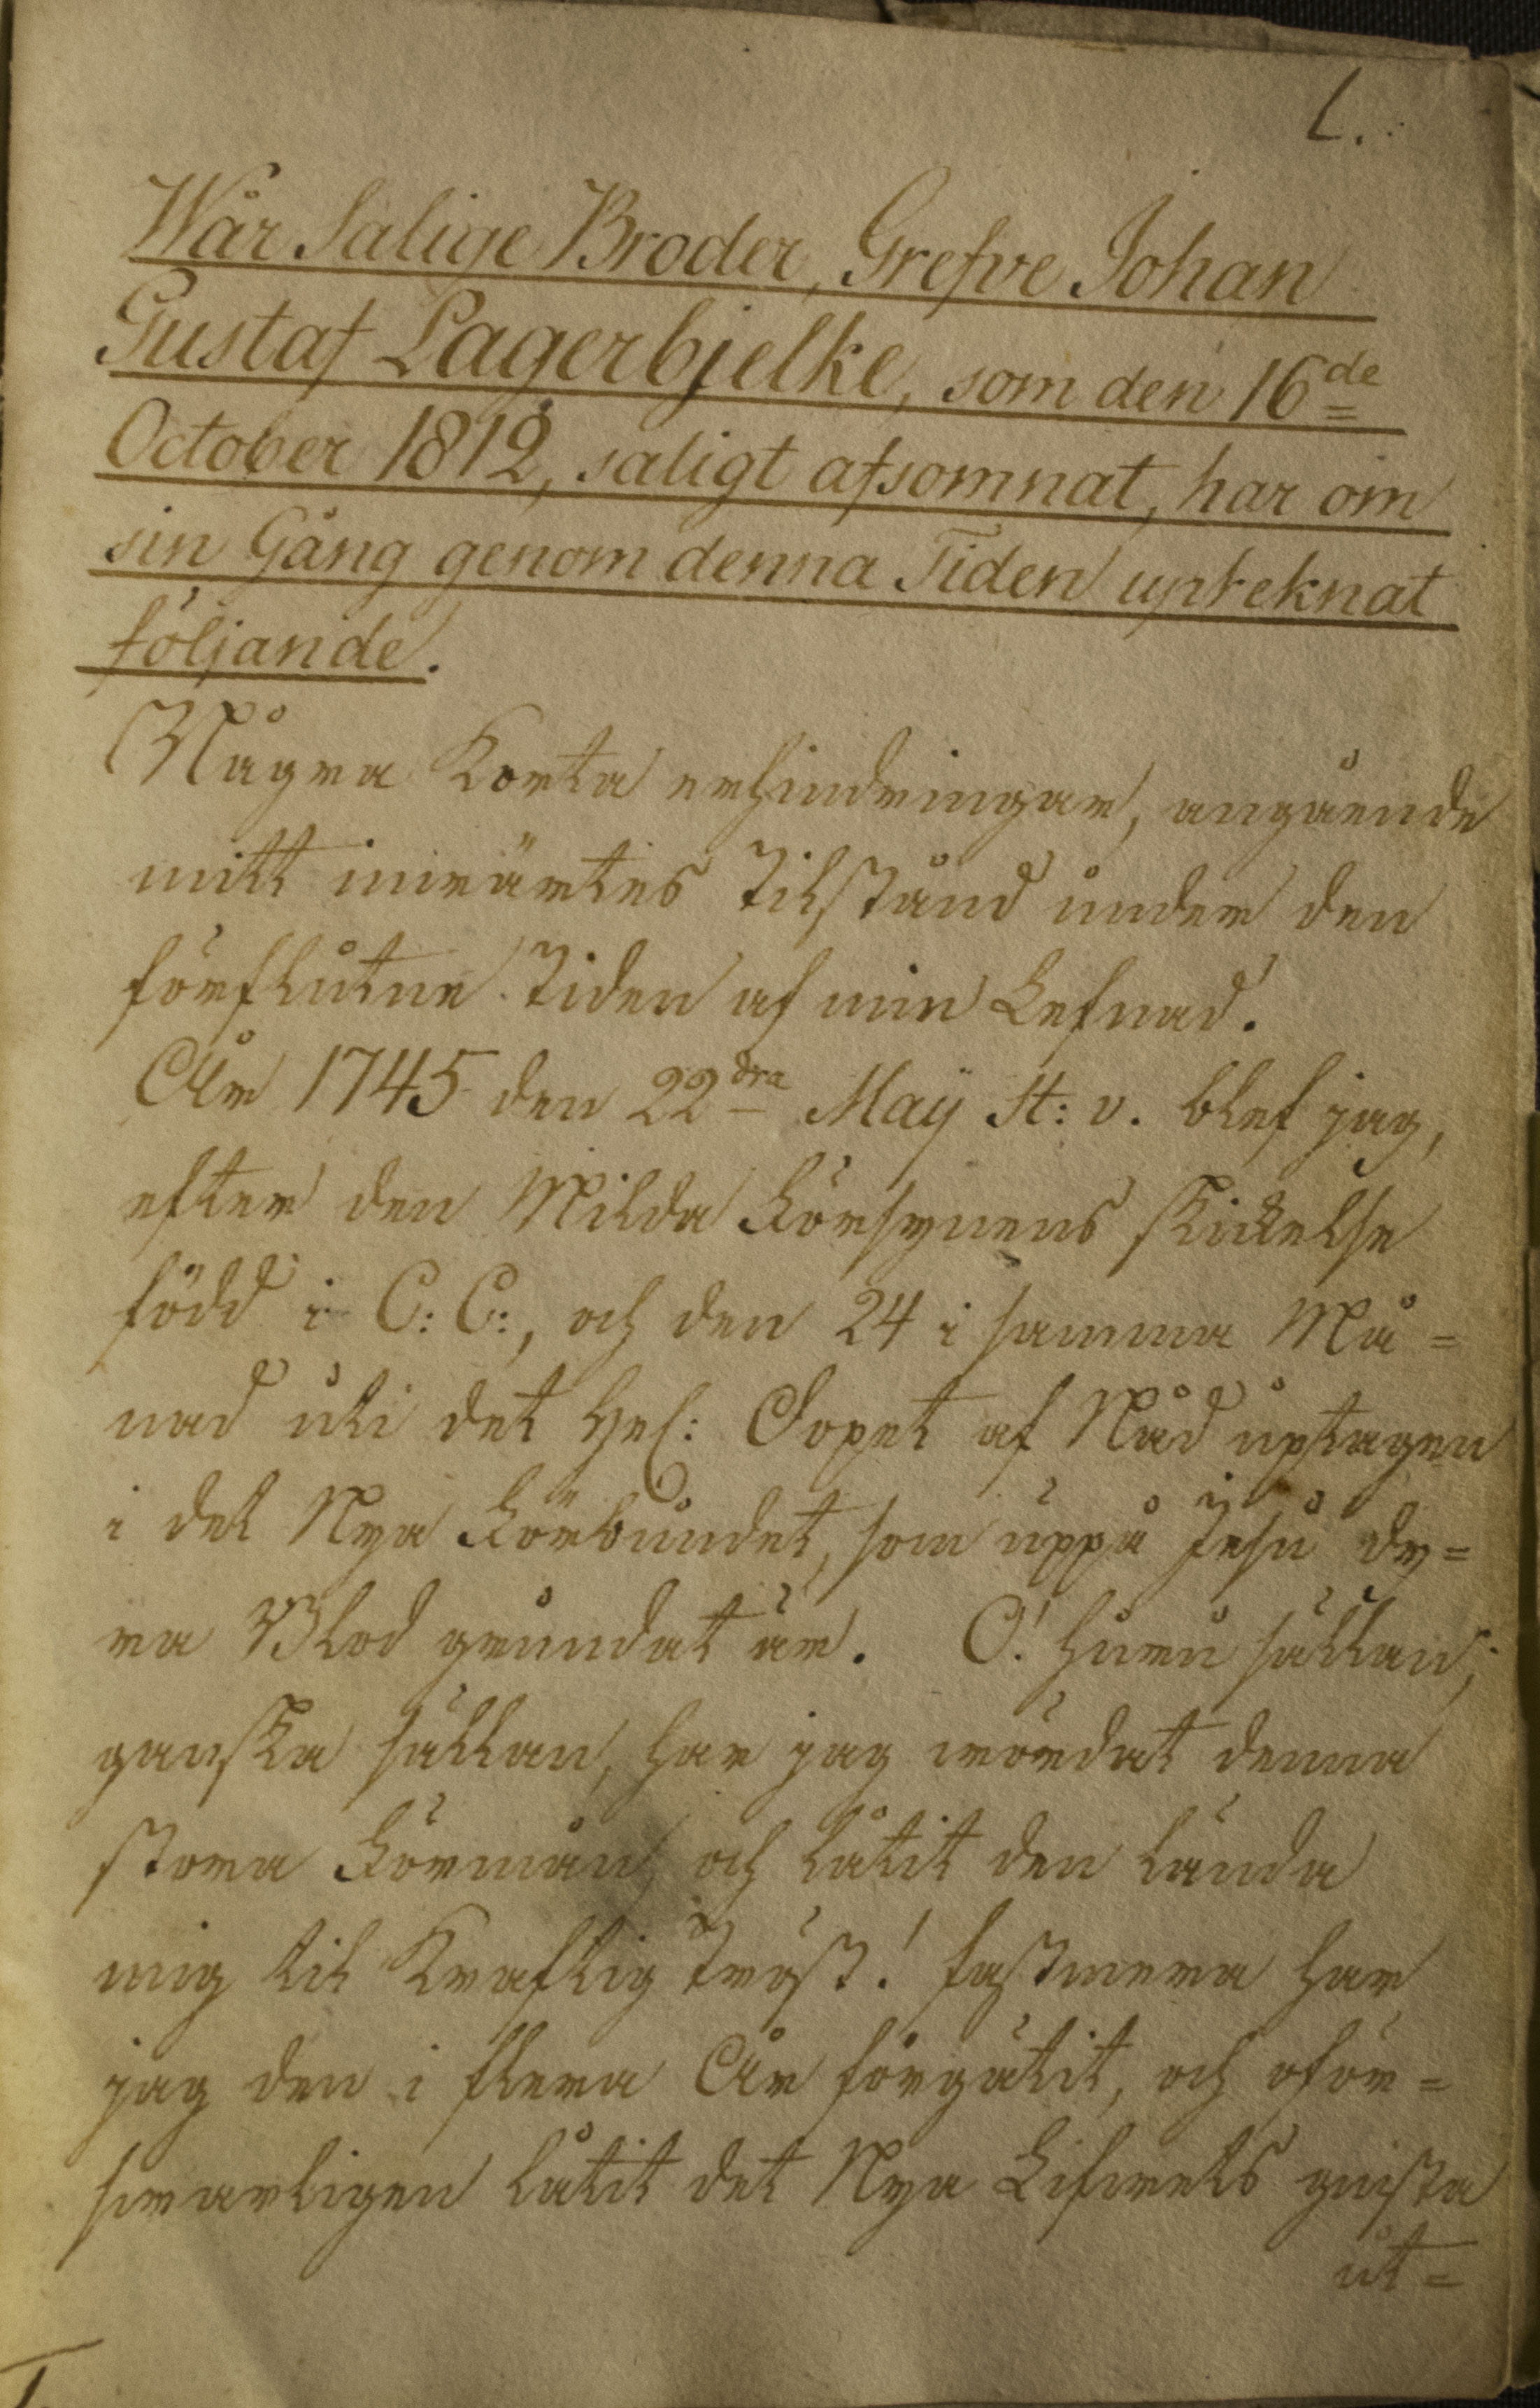 L.
Wår Salige Broder, Grefve Johan
Gustaf Lagerbjelke, som den 16de
October 1812, saligt afsomnat, har om
sin Gång genom denna Tiden upteknat
följande.
Några Korta erhindringar, angående
mitt invärtes Tilstånd under den
förflutne Tiden af min Lefnad.
År 1745 den 22dra Maÿ St: v. blef jag,
efter den Milda Försynens skickelse
född i C: C:, och den 24 i samma Må=
nad uti det Hel: Dopet af Nåd uptagen
i det Nya Förbundet, som uppå Jesu dy=
ra Blod grundat är. O! huru sällan,
ganska sällan, har jag wördat denna
stora Förmån, och låtit den lända
mig til Kraftig Tröst! fastmera har
jag den i flera År förgätit, och oför=
swarligen låtit det Nya Lifwets gnista
ut=